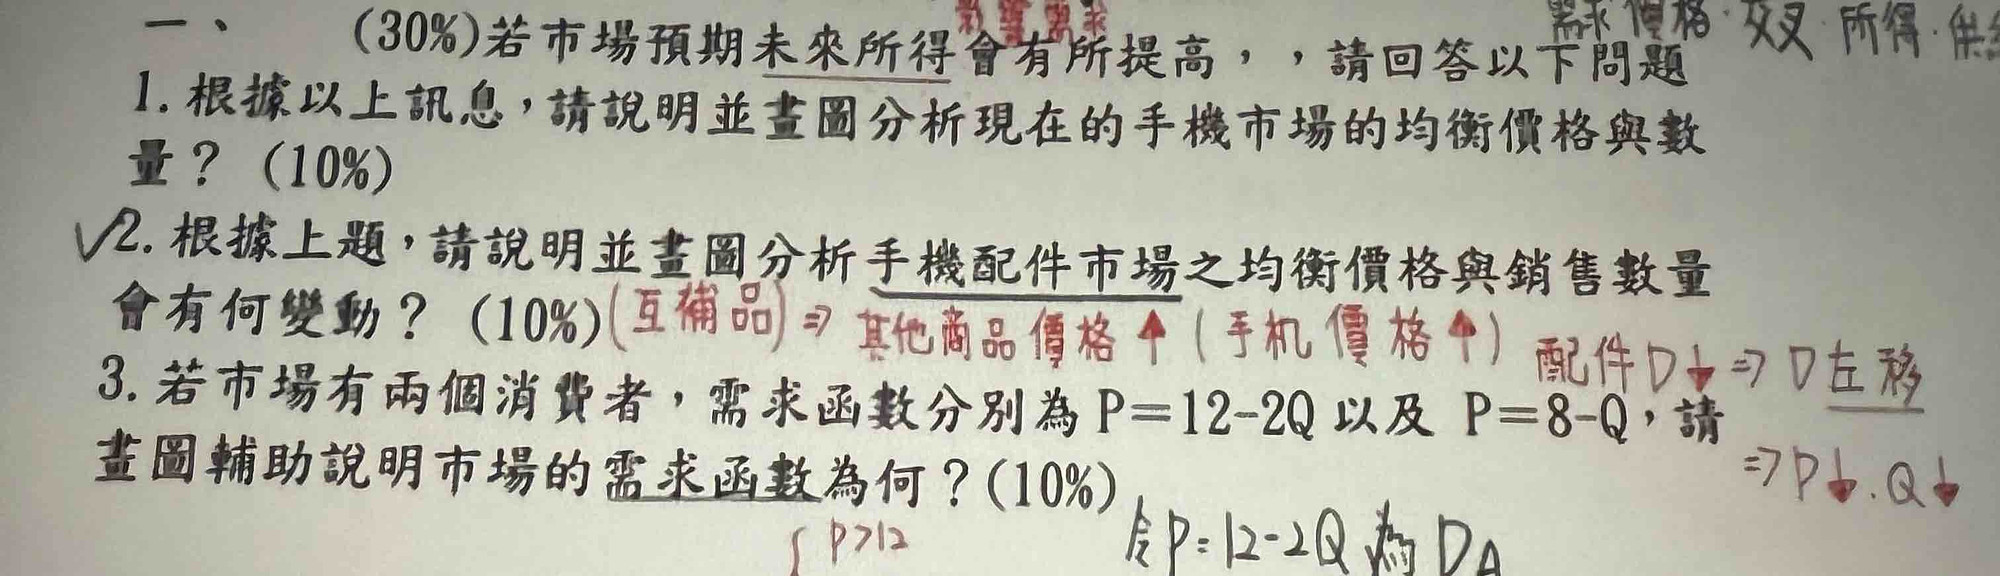 影響需求
需求價格.交叉.所得.供給
一、 (30%)若市場預期未來所得會有所提高,,請回答以下問題
1.根據以上訊息,請說明並畫圖分析現在的手機市場的均衡價格與數
量?(10%)
✓2.根據上題,請說明並畫圖分析手機配件市場之均衡價格與銷售數量
會有何變動?(10%)(互補品)⇒ 其他商品價格↑(手机價格↑) 配件D↓⇒D左移
3.若市場有兩個消費者,需求函數分別為 P=12-2Q 以及 P=8-Q,請
⇒P↓.Q↓
畫圖輔助說明市場的需求函數為何?(10%)
{ P>12
令P=12-2Q 為 DA